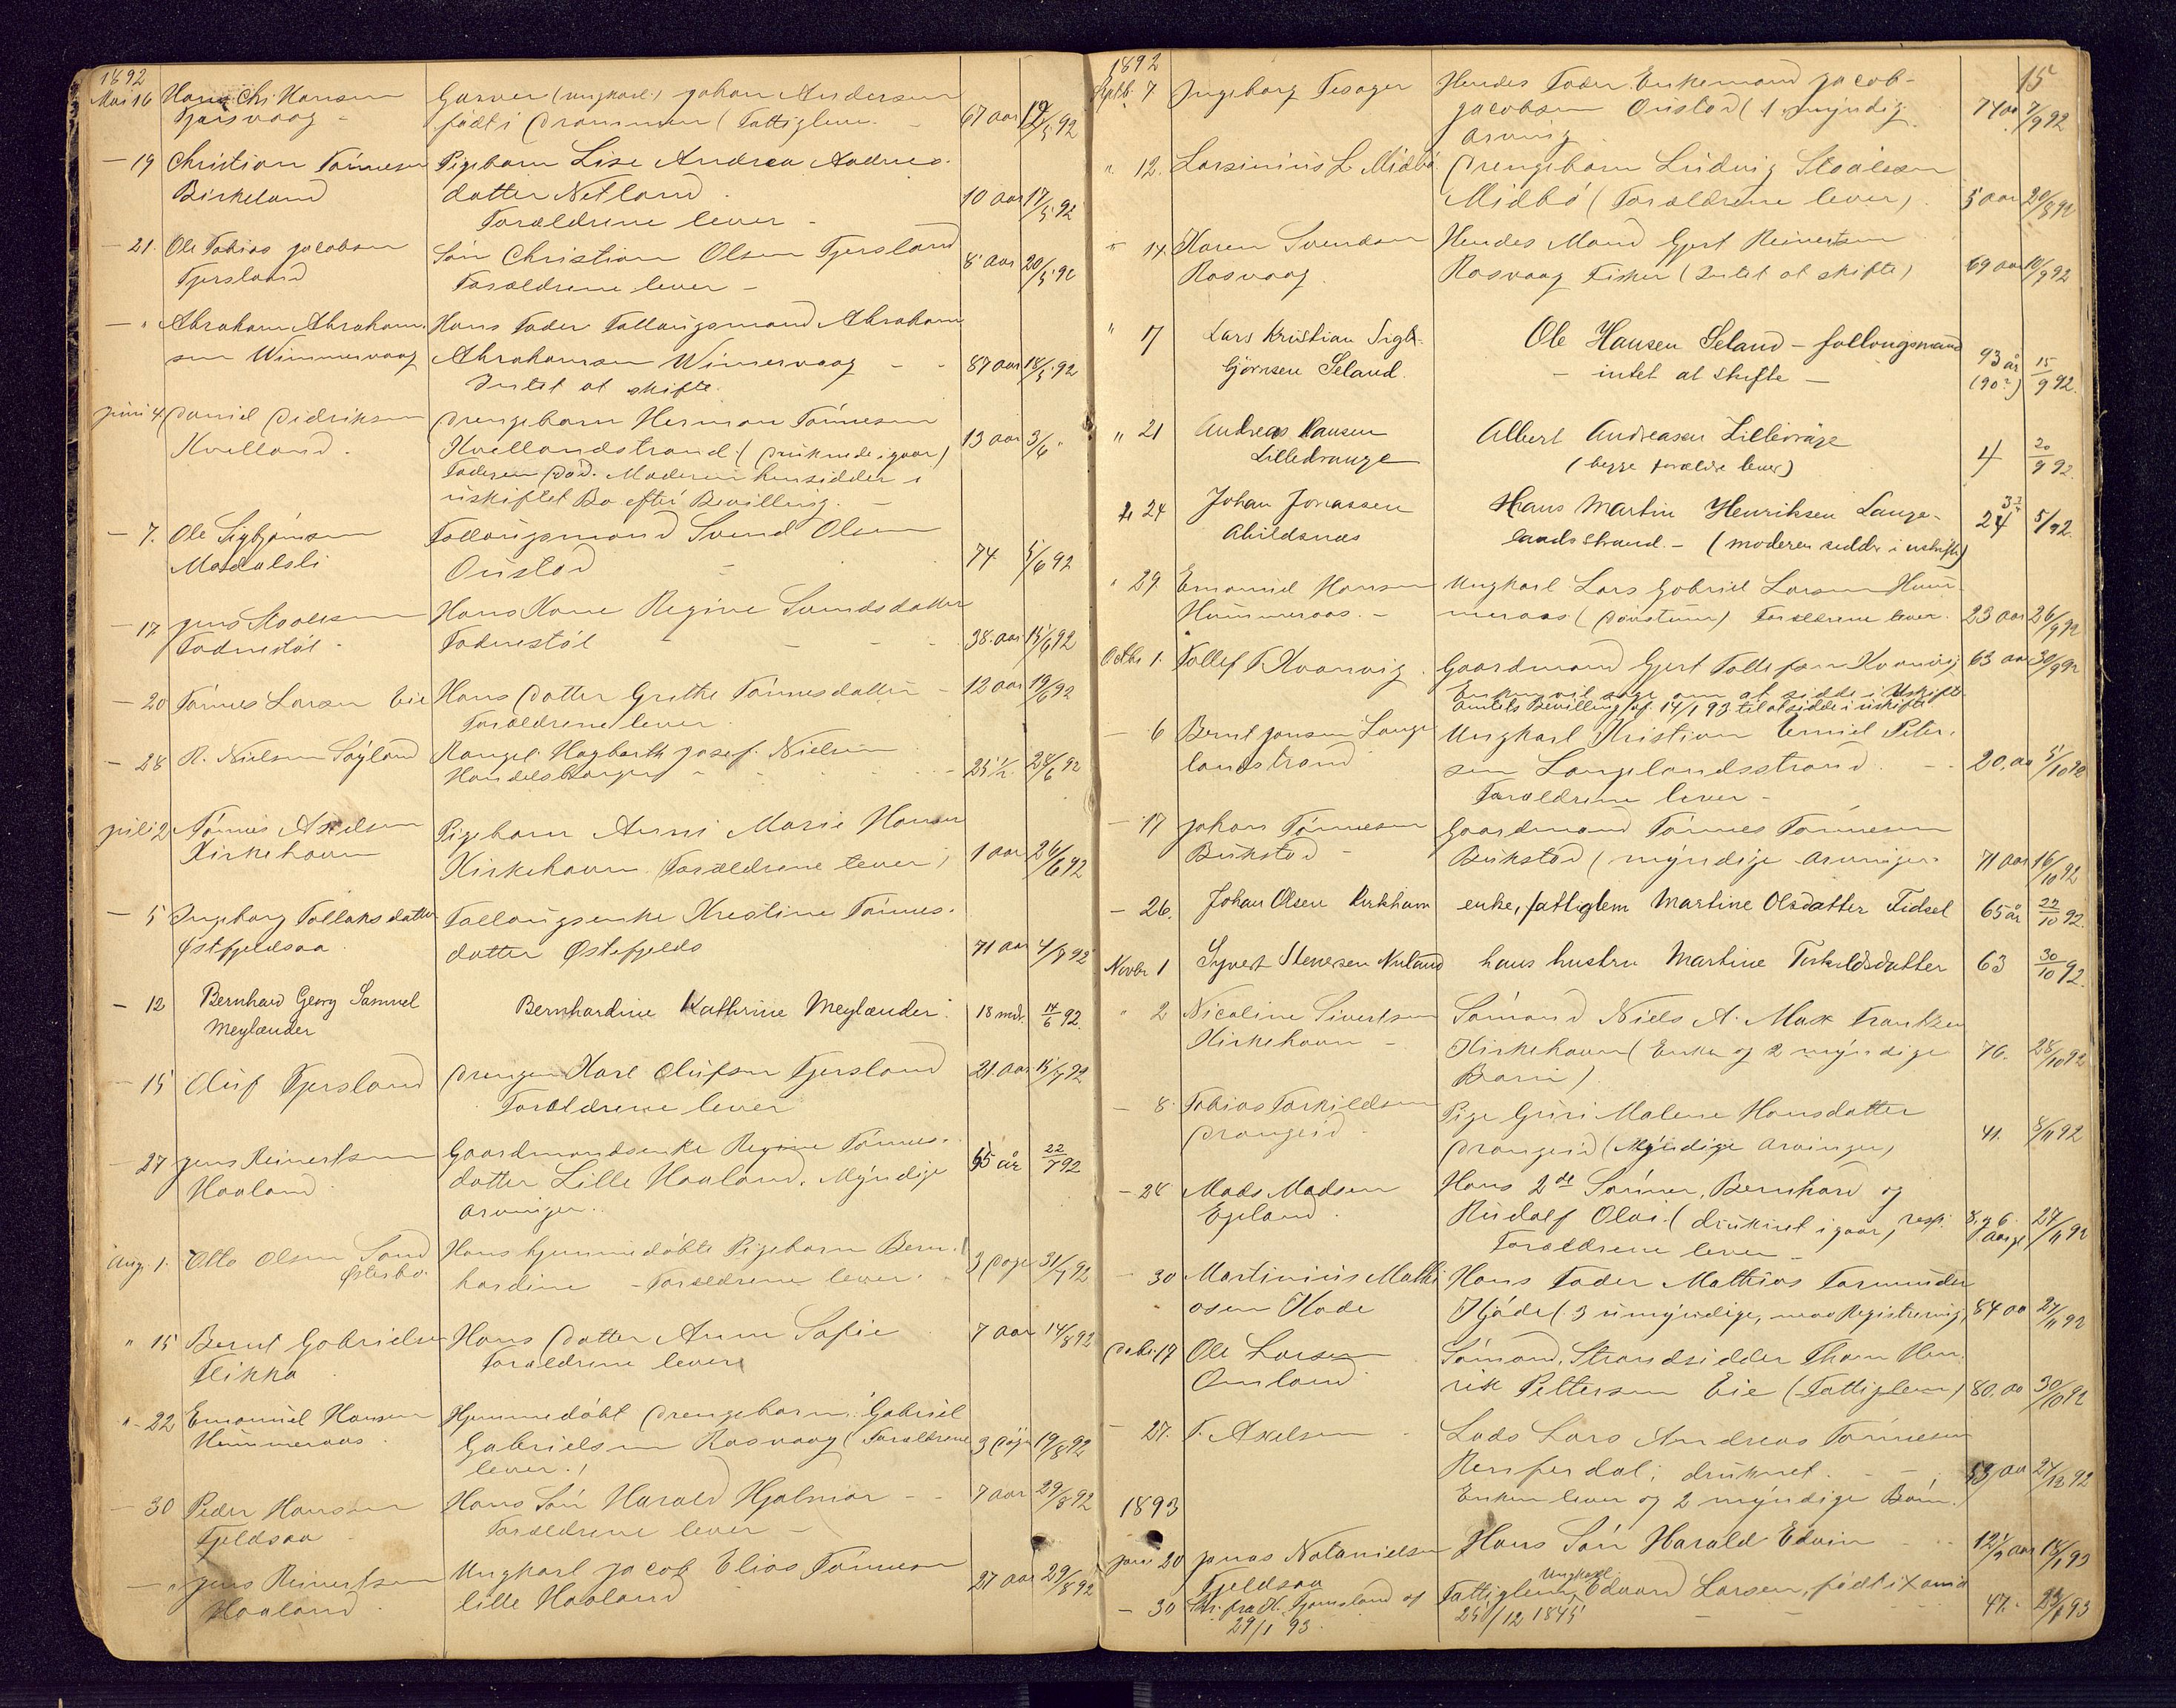 1892
Mai 16 Hans Chr. Hansen Garver (ungkarl) Johan Andersen
Tjørsvaag - født i Drammen (Fattiglem. - 67 aar 12/5 92
- 19 Christian Tønnesen Pigebarn Lise Andrea Andreas-
Birkeland datter Netland. 10 aar 17/5 92
Forældrene lever -
- 21. Ole Tobias Jacobsen Søn Christian Olsen Fjersland 8 aar 20/5 92
Fjersland Forældrene lever -
- " Abraham Abraham- Hans Fader Follaugsmand Abraham
sen Wimmervaag Abrahamsen Wimervaag - - 87 aar 18/5 92
Intet at skifte.
Juni 4 Daniel Didriksen Drengebarn Herman Tønnesen
Kvelland. Kvellandstrand (druknede igaar) 13 aar 3/6 "
Faderen død. Moderen hensidder i
uskiftet Bo efter Bevilling. -
- 7. Ole Sigbjørnsen Follaugsmand Svend Olsen
Mosdalsli Oustad - 74 5/6 92
- 17 Jens Staalesen Hans Kone Regine Svendsdatter
Fodnestøl - Fodnestøl - - - 38. aar 15/6 92
- 20 Tønnes Larsen Eie Hans Datter Grethe Tønnesdatter - 12 aar 19/6 92
Forældrene lever.
- 28 R. Nielsen Søyland Rangel Hagbarth Josef Nielsen
Handelsborger - 25 1/2. 28/6 92
Juli 2 Tønnes Axelsen Pigebarn Anni Marie Hansen
Kirkehavn Kirkehavn (Forældrene lever) 1 aar 26/6 92
- 5 Ingeborg Tollaksdatter Follaugsenke Kristine Tønnes-
Østfjeldsaa. datter Østefjelds 71 aar 4/7 92
- 12 Bernhard Georg Samuel Bernhardine Kathrine Meylænder. 18 mdr. 14/6 92.
Meylænder
- 15 Oluf Fjersland Drengen Karl Olufsen Fjersland 21. aar 15/7 92
Forældrene lever
- 27 Jens Reinertsen Gaardmandsenke Regine Tønnes-
Haaland datter Lille Haaland. Myndige 65 år 22/7 92
Arvinger.
Aug. 1. Otto Olsen Sand Hans hjemmedøbte Pigebarn Bern-
Østesbø. hardine - Forældrene lever. 3 Dage 31/7 92
" 15 Bernt Gabrielsen Hans Datter Anne Sofie 7 aar 14/8 92
Flikka Forældrene lever
" - 22 Emanuel Hansen Hjemmedøbt Drengebarn: Gabriel
Hummeraas. Gabrielsen Rosvaag (Forældrene 3 Dage 19/8 92
lever.)
- 30 Peder Hansen Hans Søn Harald Hjalmar - - 7 aar 29/8 92
Fjeldsaa Forældrene lever -
- " Jens Reinertsen Ungkarl Jacob Elias Tønnesen
Haaland. lille Haaland 27 aar 29/8 92
1892 15
Septb. 7 Ingeborg Tesager Hendes Fader Enkemand Jacob
Jacobsen Oustad (1 myndig 74 aa 7/9 92
Arving
" 12. Larsinius L. Midbø Drengebarn Ludvig Staalesen
Midbø (Forældrene lever). 5 aar 20/8 92
" 14 Karen Svendsen Hendes Mand Gjert Reinertsen
Rosvaag. Rosvaag Fisker (Intet at skifte) 69 aar 10/9 92
" 17 Lars Kristian Sigb- Ole Hansen Seland - follougsmand 93 år
Gjørnsen Seland. - intet at skifte - (90?) 15/9 92.
" 21 Andreas Hansen Albert Andreasen Lilledrange
Lilledrange (begge forældre lever) 4 20/9 92.
" 24 Johan Jonassen Hans Martin Henriksen Lange-
Abildsnæs landsstrand. - (moderen sidder i uskifte) 24
" 29 Emanuel Hansen Ungkarl Lars Gabriel Larsen Hum-
Hummeraas. - meraas (Døvstum) Forældrene lever. 23 aar 26/9 92
Octbr 1. Tollef T. Kvanvig. Gaardmand Gjert Tollefsen Kvanvig 63 aa 30/9 92
Enken vil søge om at sidde i Uskifte.
Amtets Bevilling af 14/1 93 til at sidde i uskifte
- 6 Bernt Jonsen Lange- Ungkarl Kristian Emil Peter-
landstrand sen Langelandsstrand. - - 20. aa 5/10 92
Forældrene lever -
- 17 Johan Tønnesen Gaardmand Tønnes Tønnesen
Bukstad - Bukstad (myndige Arvinger. 71 aar 16/10 92
- 26. Johan Olsen Kirkhavn enke, fattiglem Martine Olsdatter Fidsel 65 år 22/10 92.
Novbr 1 Syvert Stenesen Nuland hans hustru Martine Torkildsdatter 63 30/10 92.
" 2 Nicoline Sivertsen Sømand Niels A. Mask Frantzen
Kirkehavn - Kirkehavn (Enke og 2 myndige 76. 28/10 92
Børn)
- 8. Tobias Torkildsen Pige Guri Malene Hansdatter
Drangeid - Drangeid (Myndige Arvinger) 41. 8/11 92
- 28 Mads Madsen Hans 2de Sønner, Bernhard og
Egeland. Rudolf Olai. (druknet igaar) resp. 8 og 6 aar 27/11 92
Forældrene lever -
- 30 Martinius Mathi- Hans Fader Mathias Tarmunder
asen Kade Kjøde (3 umyndige, nær Registrering) 84 aa 27/11 92
Decbr. 17 Ole Larsen Sømand, Strandsidder Thom Hen-
Omland. rik Pettersen Eie (Fattiglem) 80. aa 30/10 92
- 27. T. Axelsen - Lods Lars Andreas Tønnesen
Resferdal; druknet. - - 53 aa 24/12 92
Enken lever og 2 myndige Børn.
1893
Jan. 20 Jonas Natanielsen Hans Søn Harald Edvin - - 12 1/2 aar 18/1 93
Fjeldsaa Ungkarl
- 30 fra H. Tjomsland af Fattiglem, Edvard Larsen, født i Vanse
29/1 93. 25/12 1845 - - 47. 23/1 93